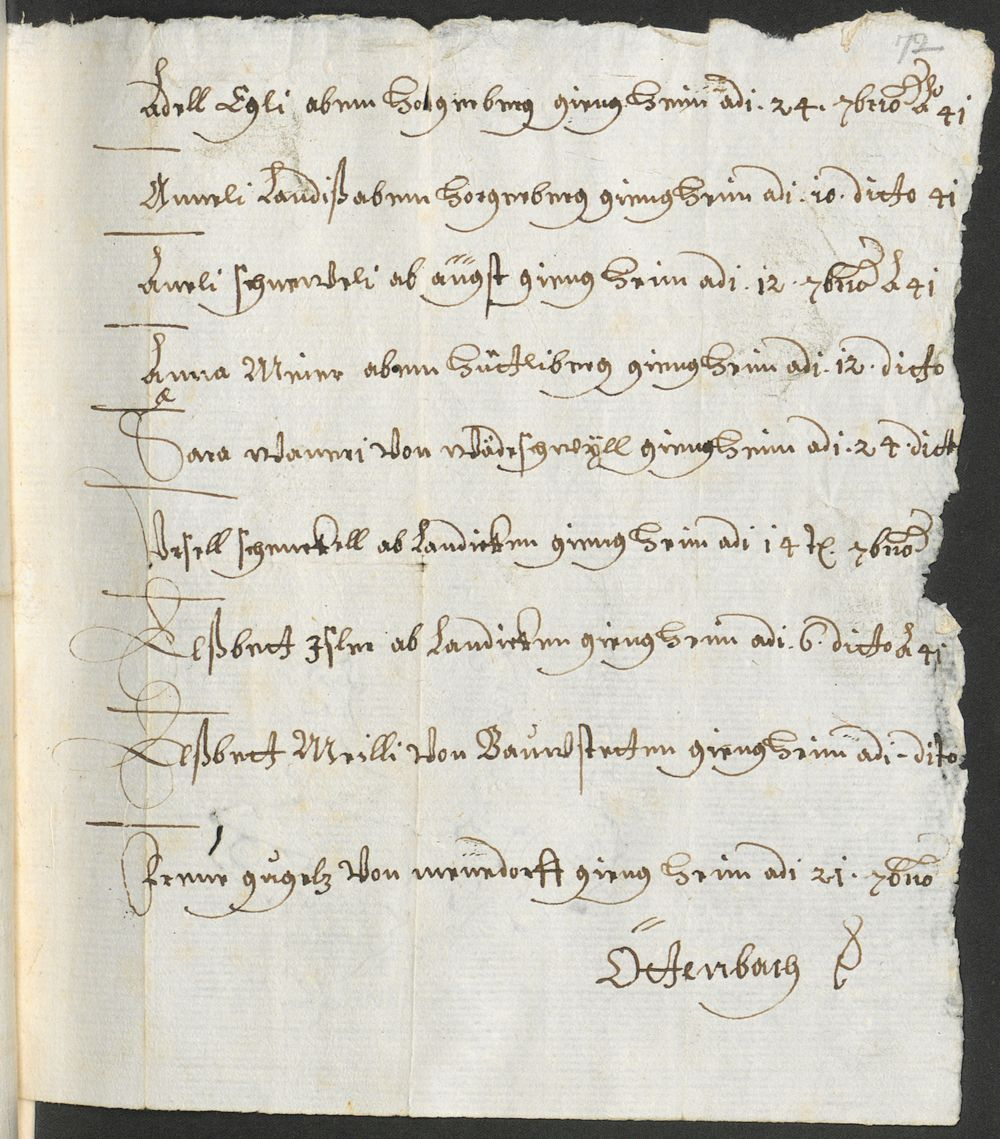 72
Adell Egli abem Horgerberg gieng heim adi . 24 . 7bris A° 41
Anneli Landiß abem Horgerberg gieng heim adi . 10 . ditto 41
Aneli schneweli ab äügst gieng heim adi . 12 . 7bris A 41
Anna Meier abem Hüttliberg gieng heim adi . 12 . ditto
Sara waneri von wädeschwÿll gieng heim adi . 24 . ditt
Vrsell schenckell ab Landicken gieng heim adi 14 7bris
Elßbett Isler ab Landicken gieng heim adi . 6 . ditto A 41
Elßbett Meilli von Bauwstetten gieng heim adi - dito
Frene gugelz von menedorff gieng heim adi 21 . 7bris
Öttenbach